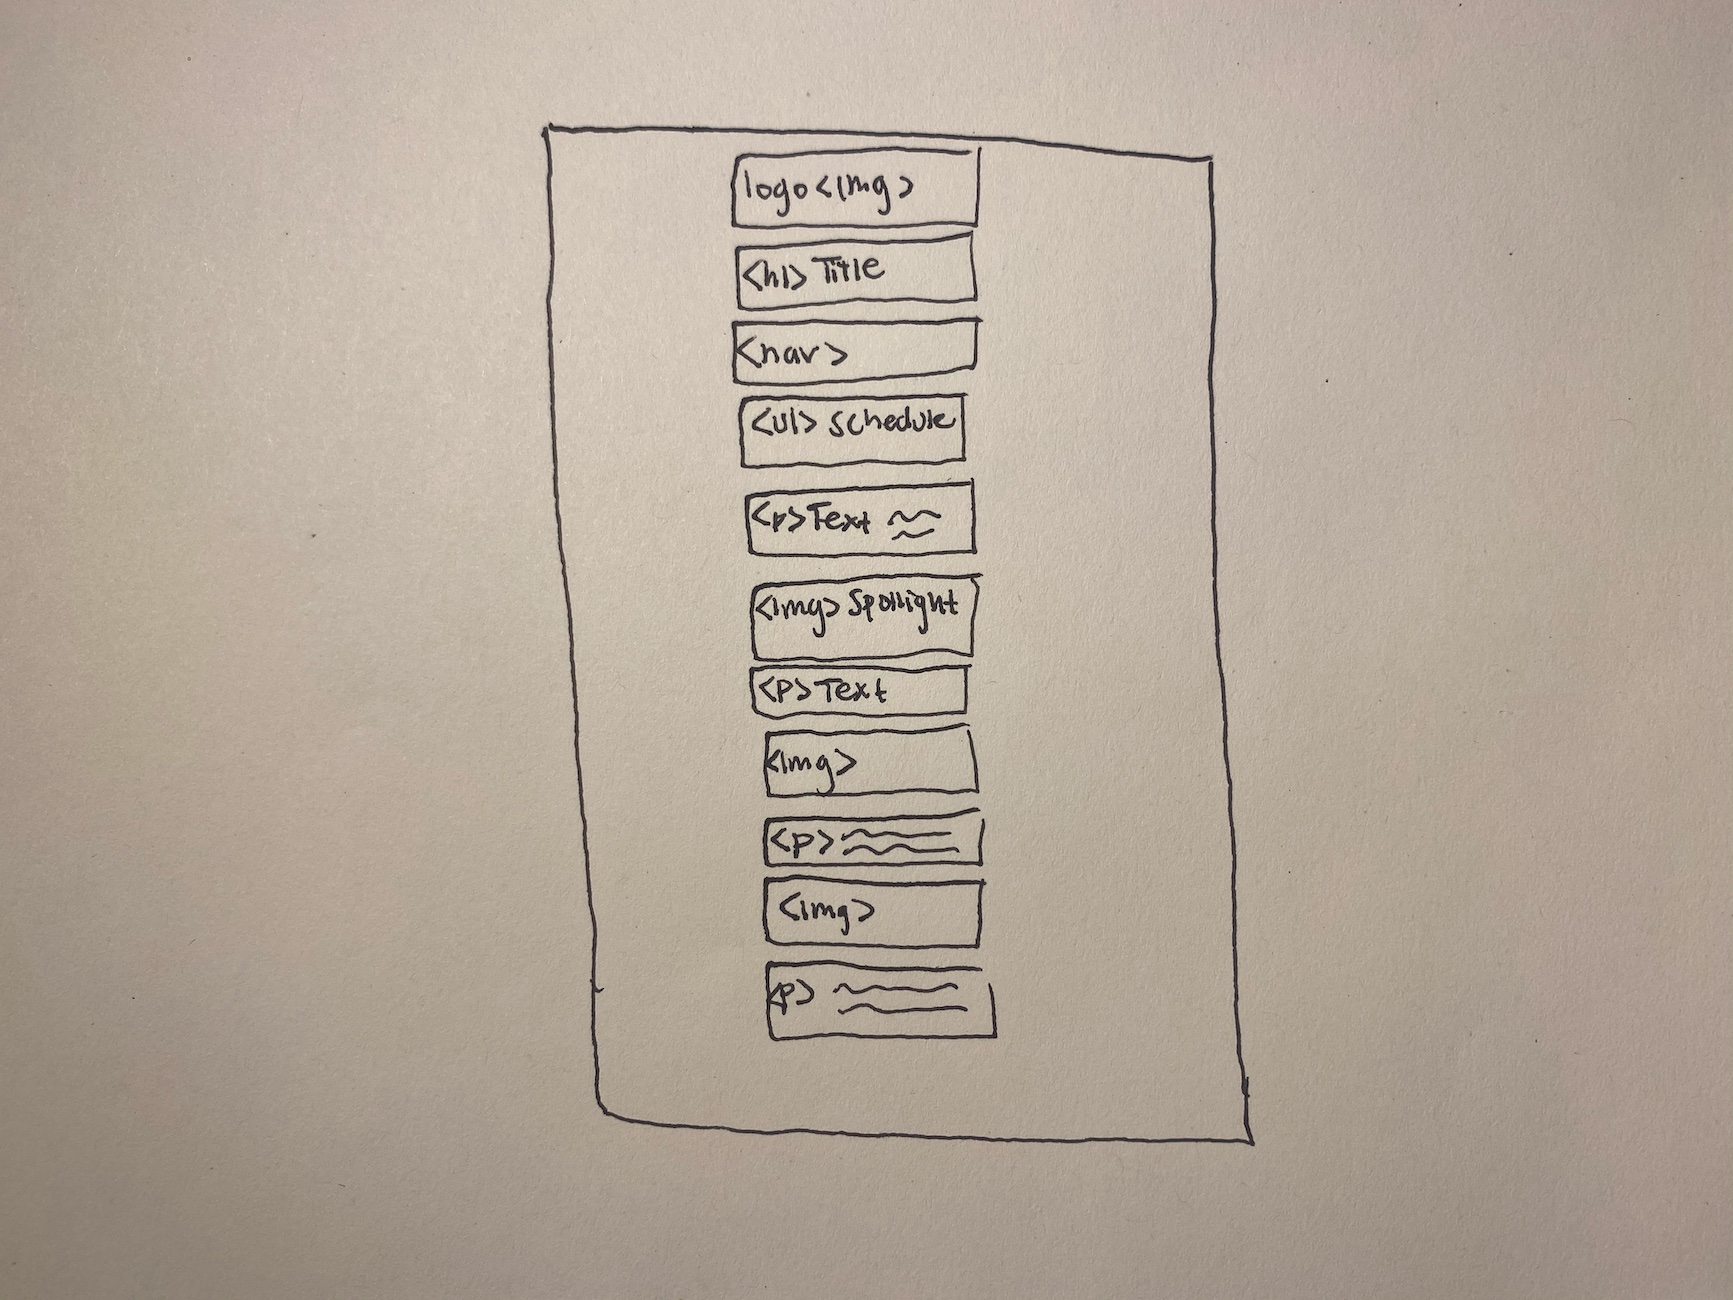 logo <img>
<h1> Title
<nav>
<ul> schedule
<p> Text
<img> Spotlight
<p> Text
<img>
<p>
<img>
<p>